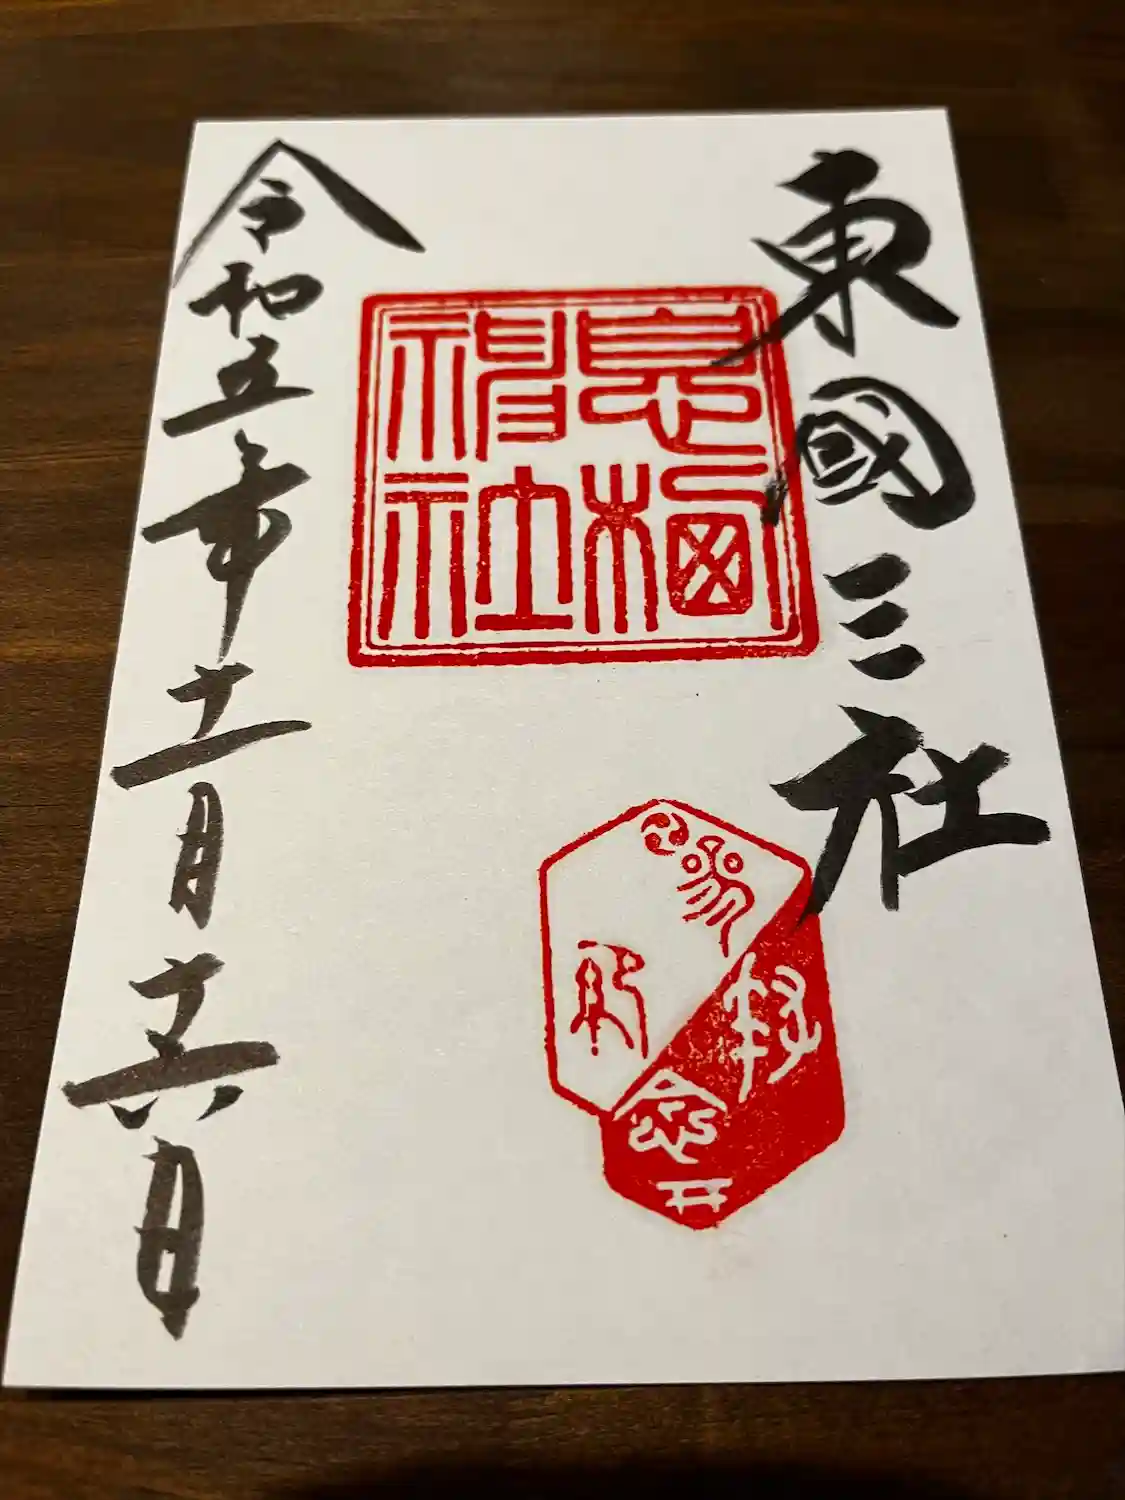 東國三社
息栖
神社
令和五年十一月十六日